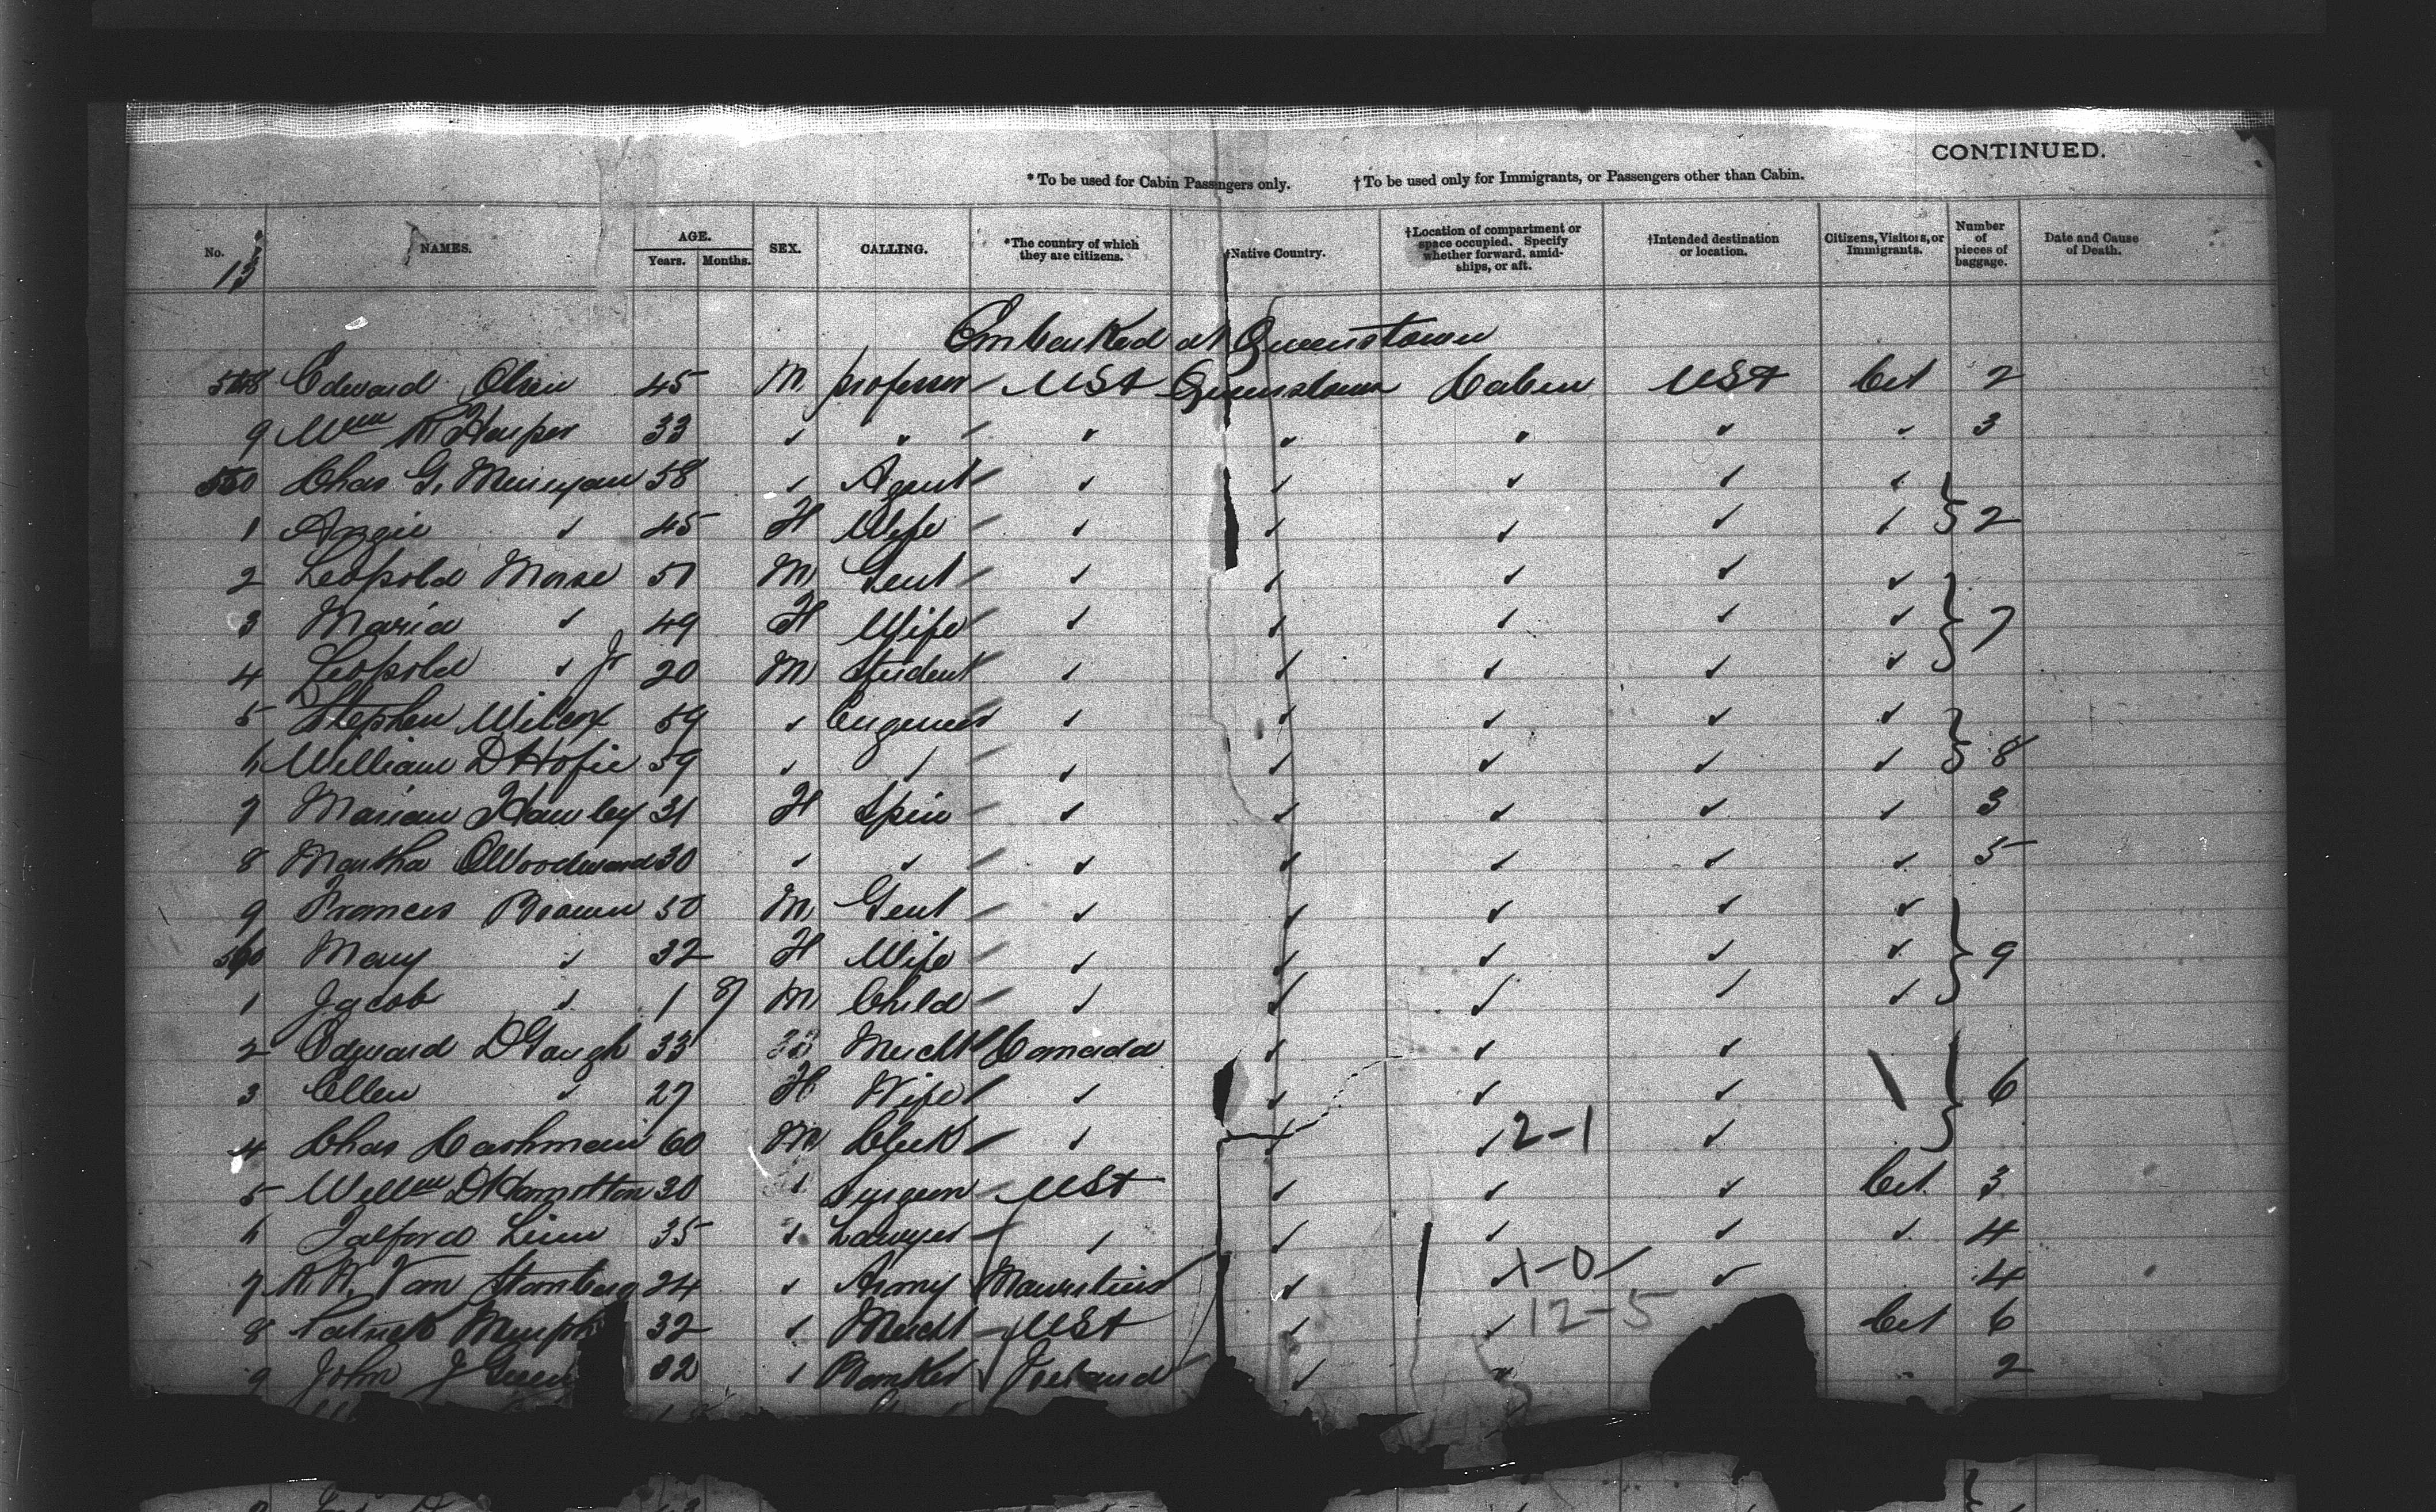 CONTINUED.
* To be used for Cabin Passengers only. † To be used only for Immigrants, or Passengers other than Cabin.
No. NAMES. AGE. Years. Months. SEX. CALLING. *The country of which they are citizens. †Native Country. †Location of compartment or space occupied. Specify whether forward, amidships, or aft. †Intended destination or location. Citizens, Visitors, or Immigrants. Number of pieces of baggage. Date and Cause of Death.
13
Embarked at Queenstown
548 Edward Olsen 45 M professor USA Queenstown Cabin USA Cit 2
9 Wm R Harper 33 " " " " " " " 3
550 Chas G. 58 " Agent " " " " "
1 Angie " 45 F Wife " " " " " 2
2 Leopold Morse 51 M Gent " " " " "
3 Maria " 49 F Wife " " " " " 7
4 Leopold " Jr 20 M Student " " " " "
5 Stephen Wilcox 59 " Engineer " " " " "
6 William D 59 " " " " " " " 8
7 Marian Hawley 31 F Spin " " " " " 3
8 Martha Woodward 30 " " " " " " " 5
9 Frances Brown 50 M Gent " " " " "
560 Mary " 32 F Wife " " " " " 9
1 Jacob " 1 M Child " " " " "
2 Edward Gough 33 Mercht Canada " " "
3 Ellen " 27 F Wife " " " " 6
4 Chas Cashman 60 M Clerk " " " 2-1 "
5 Willm 30 " Surgeon USA " " " Cit 3
6 Talford Linn 35 " Lawyer " " " " " 4
7 Van 24 " Army Mauritius " " 1-0 " 4
8 Patrick Murph 32 " Mercht USA " " 12-5 Cit 6
9 John J Green 32 " Banker Ireland " " " 2